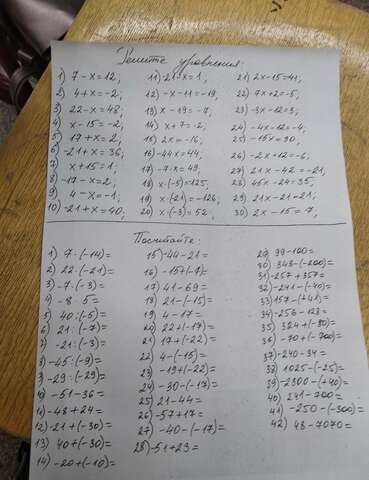 Решите уравнения:
1) 7 - x = 12;
2) 4 + x = -2;
3) 22 - x = 48;
4) x - 15 = -2;
5) 17 + x = 2;
6) -21 + x = 36;
7) x + 15 = 1;
8) -17 - x = 2;
9) 4 - x = -1;
10) -21 + x = 40;
11) 21 - x = 1;
12) -x - 11 = -19;
13) x - 19 = -7;
14) x + 7 = -2;
15) 2x = -16;
16) -44x = 44;
17) -7·x = 49;
18) x·(-5) = 125;
19) x·(-21) = -126;
20) x·(-3) = 52,
21) 2x - 15 = 41;
22) 7x + 2 = -5;
23) -3x - 12 = 3;
24) -4x - 12 = -4;
25) -15x = 30;
26) -2x + 12 = -6;
27) 21x - 42 = -21;
28) 45x - 24 = 35,
29) 21x - 21 = 21;
30) 2x - 15 = 7,
Посчитайте:
1) 7·(-14) =
2) 22·(-21) =
3) -7·(-3) =
4) -8·5 =
5) 40:(-5) =
6) 21:(-7) =
-21:(-3) =
-45:(-9) =
-29:(-29) =
-51 - 36 =
-48 + 24 =
12) -21 + (-30) =
13) 40 + (-30) =
14) -20 + (-10) =
15) -44 - 21 =
16) -15 + (-7) =
17) 41 - 69 =
18) 21 - (-15) =
19) 4 - 17 =
20) 22 + (-17) =
21) 17 + (-22) =
22) 4 - (-15) =
23) -19 + (-22) =
24) -30 - (-17) =
25) 21 - 44 =
26) -57 + 17 =
27) -40 - (-17) =
28) -51 + 23 =
29) 99 - 100 =
30) 348 - (-200) =
31) -257 + 357 =
32) -241 - (-40) =
33) 157 - (+41) =
34) -256 - 128 =
35) 324 + (-80) =
36) -70 + (-700) =
37) -240 - 34 =
38) 1025 - (-25) =
39) -2300 - (+40) =
40) 241 - 700 =
41) -250 - (-300) =
42) 48 - 7070 =